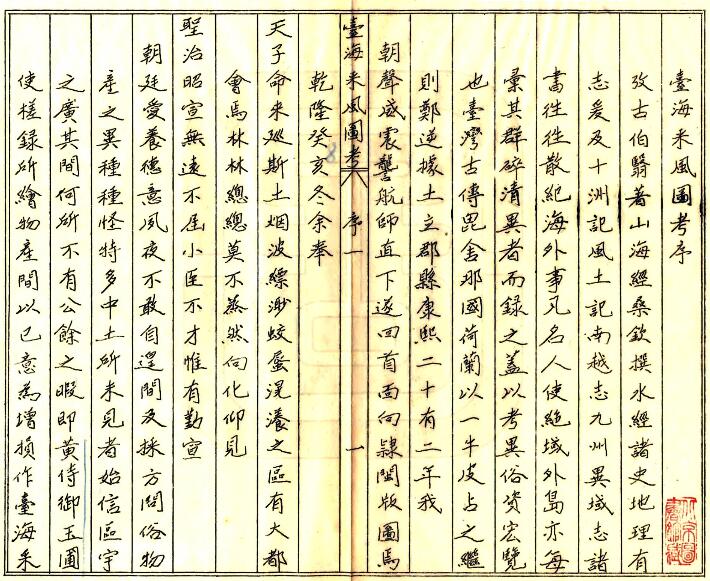 臺海采風圖考序
攷古伯翳著山海經桑欽撰水經諸史地理有
志爰及十洲記風土記南越志九州異域志諸
書徃徃散紀海外事凡名人使絶域外島亦每
彙其群碎清異者而録之蓋以考異俗資宏覽
也臺灣古傳毘舍那國荷蘭以一牛皮占之繼
則鄭逆據土立郡縣康熙二十有二年我
朝聲威震讋航師直下遂回首面向隷閩版圖焉
臺海采風圖考 序一 一
乾隆癸亥冬余奉
天子命来廵斯土烟波縹渺蛟蜃滉瀁之區有大都
會焉林林總總莫不蒸然向化仰見
聖治昭宣無遠不届小臣不才惟有勤宣
朝廷愛養德意夙夜不敢自遑間及採方問俗物
產之異種種怪特多中土所未見者始信區宇
之廣其間何所不有公餘之暇即黄侍御玉圃
使槎録所繪物產間以已意為增損作臺海采